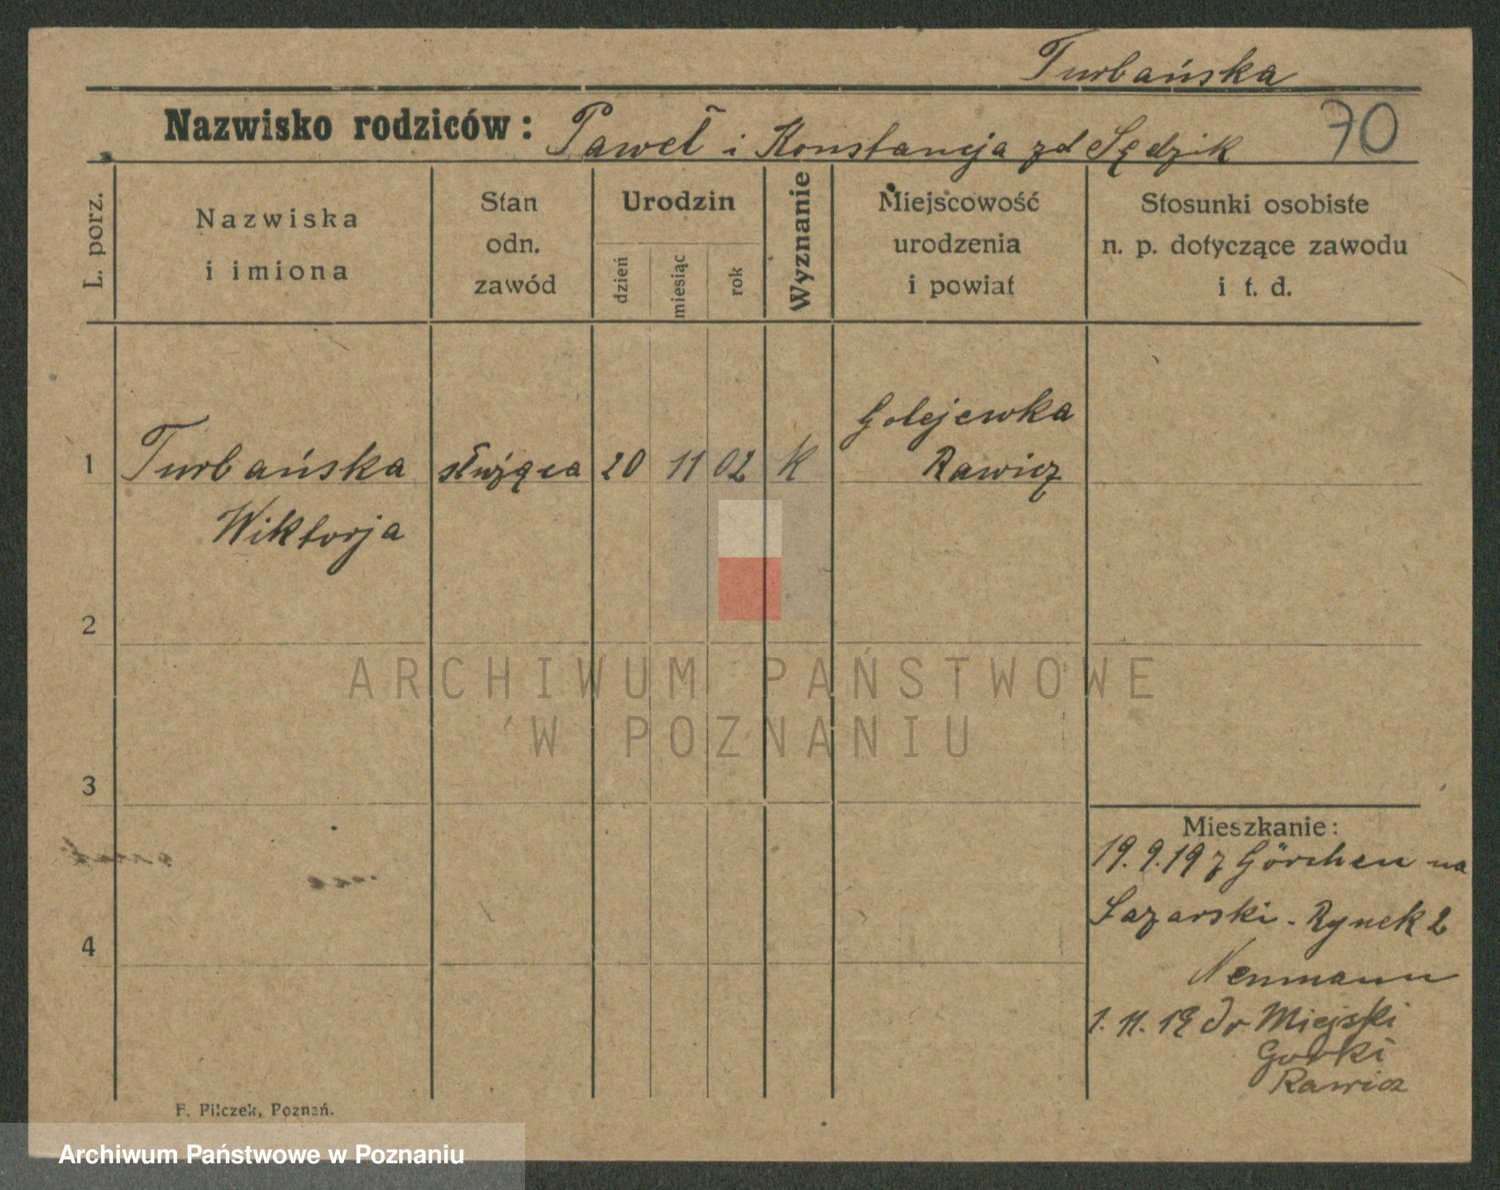 Turbańska
Nazwisko rodziców: Paweł i Konstancja zd Sędzik 70
L. porz.
Nazwiska
i imiona
Stan
odn.
zawód
Urodzin
dzień
miesiąc
rok
Wyznanie
Miejscowość
urodzenia
i powiat
Stosunki osobiste
n. p. dotyczące zawodu
i t. d.
1 Turbańska służąca 20 11 02 K Golejewka
Rawicz
Wiktorja
2
3
4
ARCHIWUM PAŃSTWOWE
W POZNANIU
Mieszkanie:
19.9.19 z Görchen na
Łazarski. Rynek 2
Neumann
1.11.19 Miejski
Gorki
Rawicz
F. Pilczek, Poznań.
Archiwum Państwowe w Poznaniu